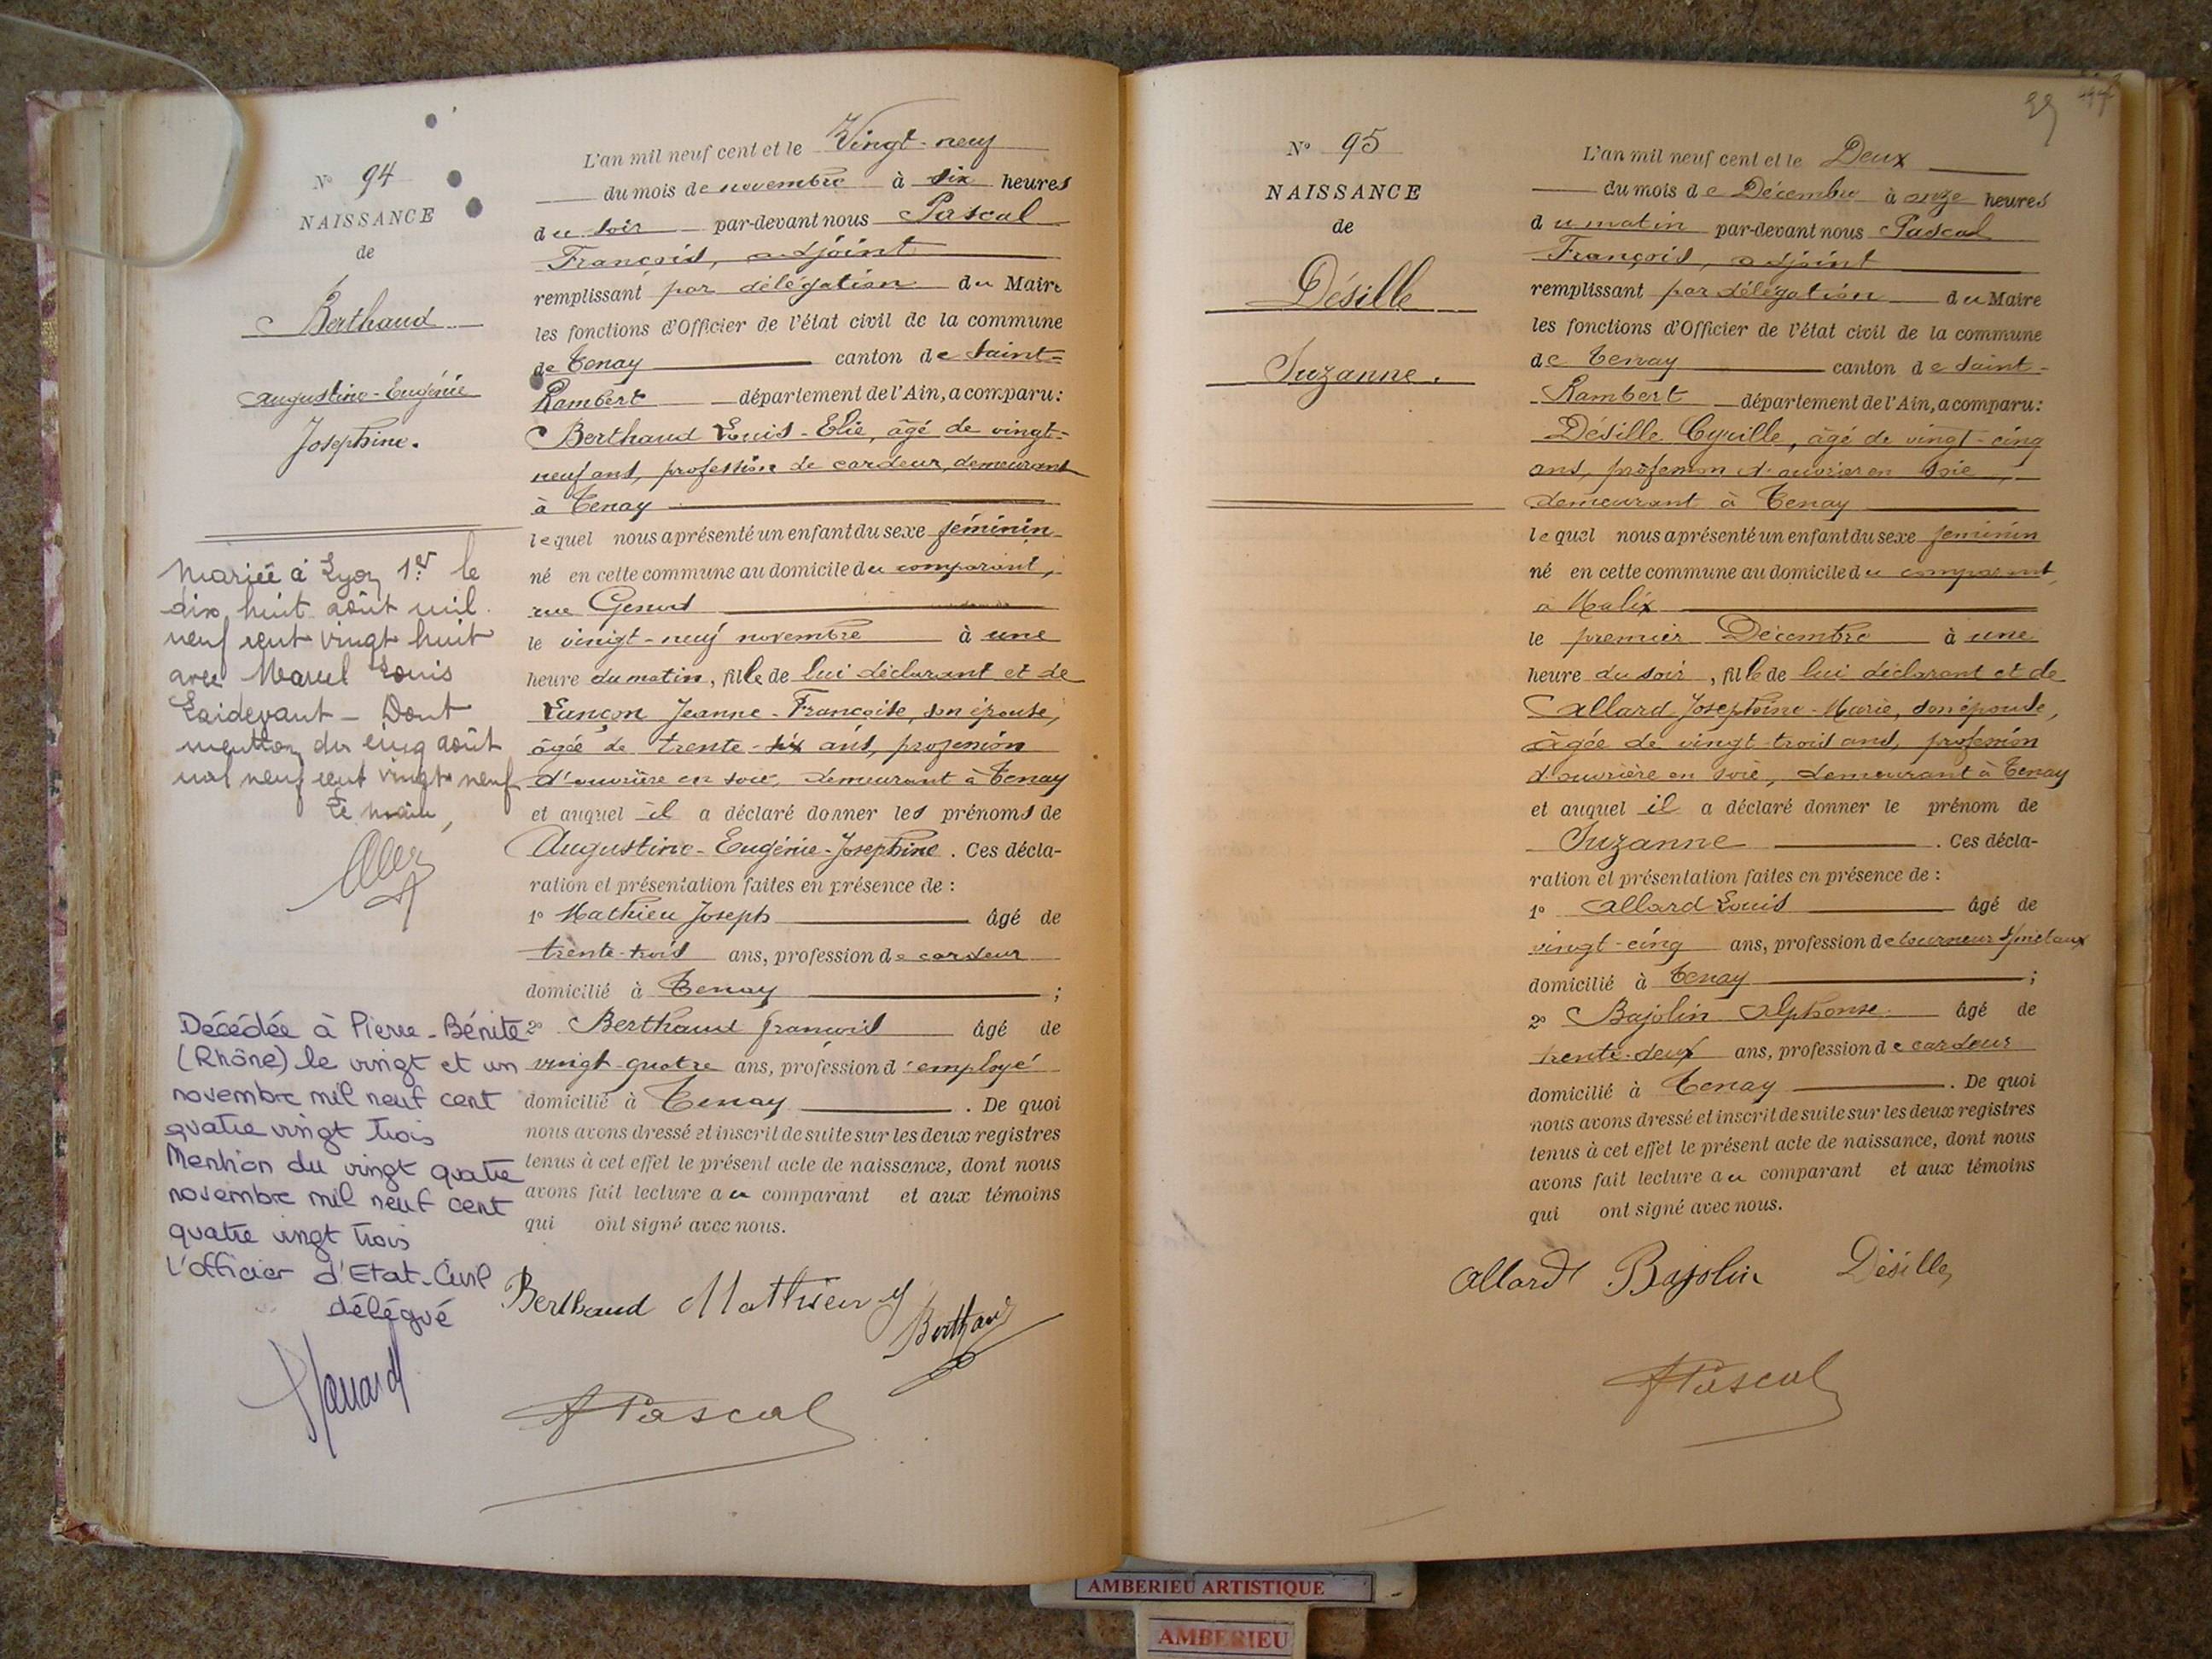 N° 94
NAISSANCE
de
Berthaud
Augustine-Eugénie
Josephine.
Mariée à Lyon 1er le
dix huit août mil
neuf cent vingt huit
avec Marcel Louis
Laidevant - Dont
mention du cinq août
mil neuf cent vingt neuf
Le maire,
Décédée à Pierre-Bénite
(Rhône) le vingt et un
novembre mil neuf cent
quatre vingt trois
Mention du vingt quatre
novembre mil neuf cent
quatre vingt trois
L'officier d'Etat-Civil
délégué
L'an mil neuf cent et le Vingt-neuf
du mois de novembre à six heures
du soir par-devant nous Pascal
François, adjoint
remplissant par délégation du Maire
les fonctions d'Officier de l'état civil de la commune
de Tenay canton de Saint-
Rambert département de l'Ain, a comparu:
Berthaud Louis-Elie, âgé de vingt-
neuf ans, profession de cardeur, demeurant
à Tenay
lequel nous a présenté un enfant du sexe féminin
né en cette commune au domicile du comparant,
rue
le vinigt-neuf novembre à une
heure du matin, fille de lui déclarant et de
Lançon Jeanne-Françoise, son épouse,
âgée de trente-six ans, profession
d'ouvrière en soie, demeurant à Tenay
et auquel il a déclaré donner les prénoms de
Augustine-Eugénie-Josephine. Ces décla-
ration et présentation faites en présence de :
1° Mathieu Joseph âgé de
trente-trois ans, profession de cardeur
domicilié à Tenay ;
2° Berthaud François âgé de
vingt-quatre ans, profession d'employé
domicilié à Tenay . De quoi
nous avons dressé et inscrit de suite sur les deux registres
tenus à cet effet le présent acte de naissance, dont nous
avons fait lecture au comparant et aux témoins
qui ont signé avec nous.
Berthaud Mathieu J
Berthaud
F Pascal
N° 95
NAISSANCE
de
Désille
Suzanne.
L'an mil neuf cent et le Deux
du mois de Décembre à onze heures
du matin par-devant nous Pascal
François, adjoint
remplissant par délégation du Maire
les fonctions d'Officier de l'état civil de la commune
de Tenay canton de Saint-
Rambert département de l'Ain, a comparu:
Désille Cyrille, âgé de vingt-cinq
ans, profession d'ouvrier en soie,
demeurant à Tenay
lequel nous a présenté un enfant du sexe féminin
né en cette commune au domicile du comparant,
à Malix
le premier Décembre à une
heure du soir, fille de lui déclarant et de
Allard Josephine-Marie, son épouse,
âgée de vingt-trois ans, profession
d'ouvrière en soie, demeurant à Tenay
et auquel il a déclaré donner le prénom de
Suzanne . Ces décla-
ration et présentation faites en présence de :
1° Allard Louis âgé de
vingt-cinq ans, profession de tourneur s/métaux
domicilié à Tenay ;
2° Bajolin Alphonse âgé de
trente-deux ans, profession de cardeur
domicilié à Tenay . De quoi
nous avons dressé et inscrit de suite sur les deux registres
tenus à cet effet le présent acte de naissance, dont nous
avons fait lecture au comparant et aux témoins
qui ont signé avec nous.
Allard Bajolin Désille
F Pascal
AMBERIEU ARTISTIQUE
AMBERIEU